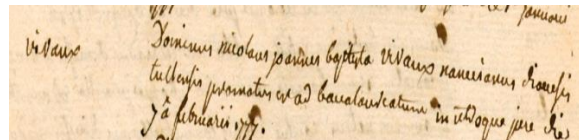 januarii
vivaux Dominus nicolaus joannes baptista vivaux nanceianus dioecesis
tullensis promotus est ad baccalaureatum in utroque jure die
7â februarii 1777.